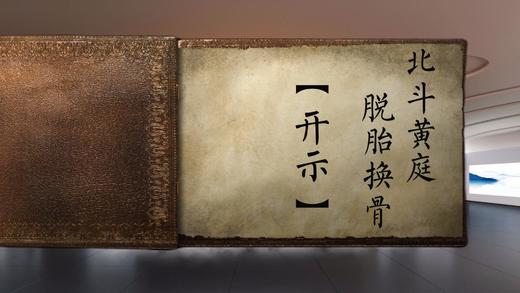 北斗黄庭
脱胎换骨
【开示】